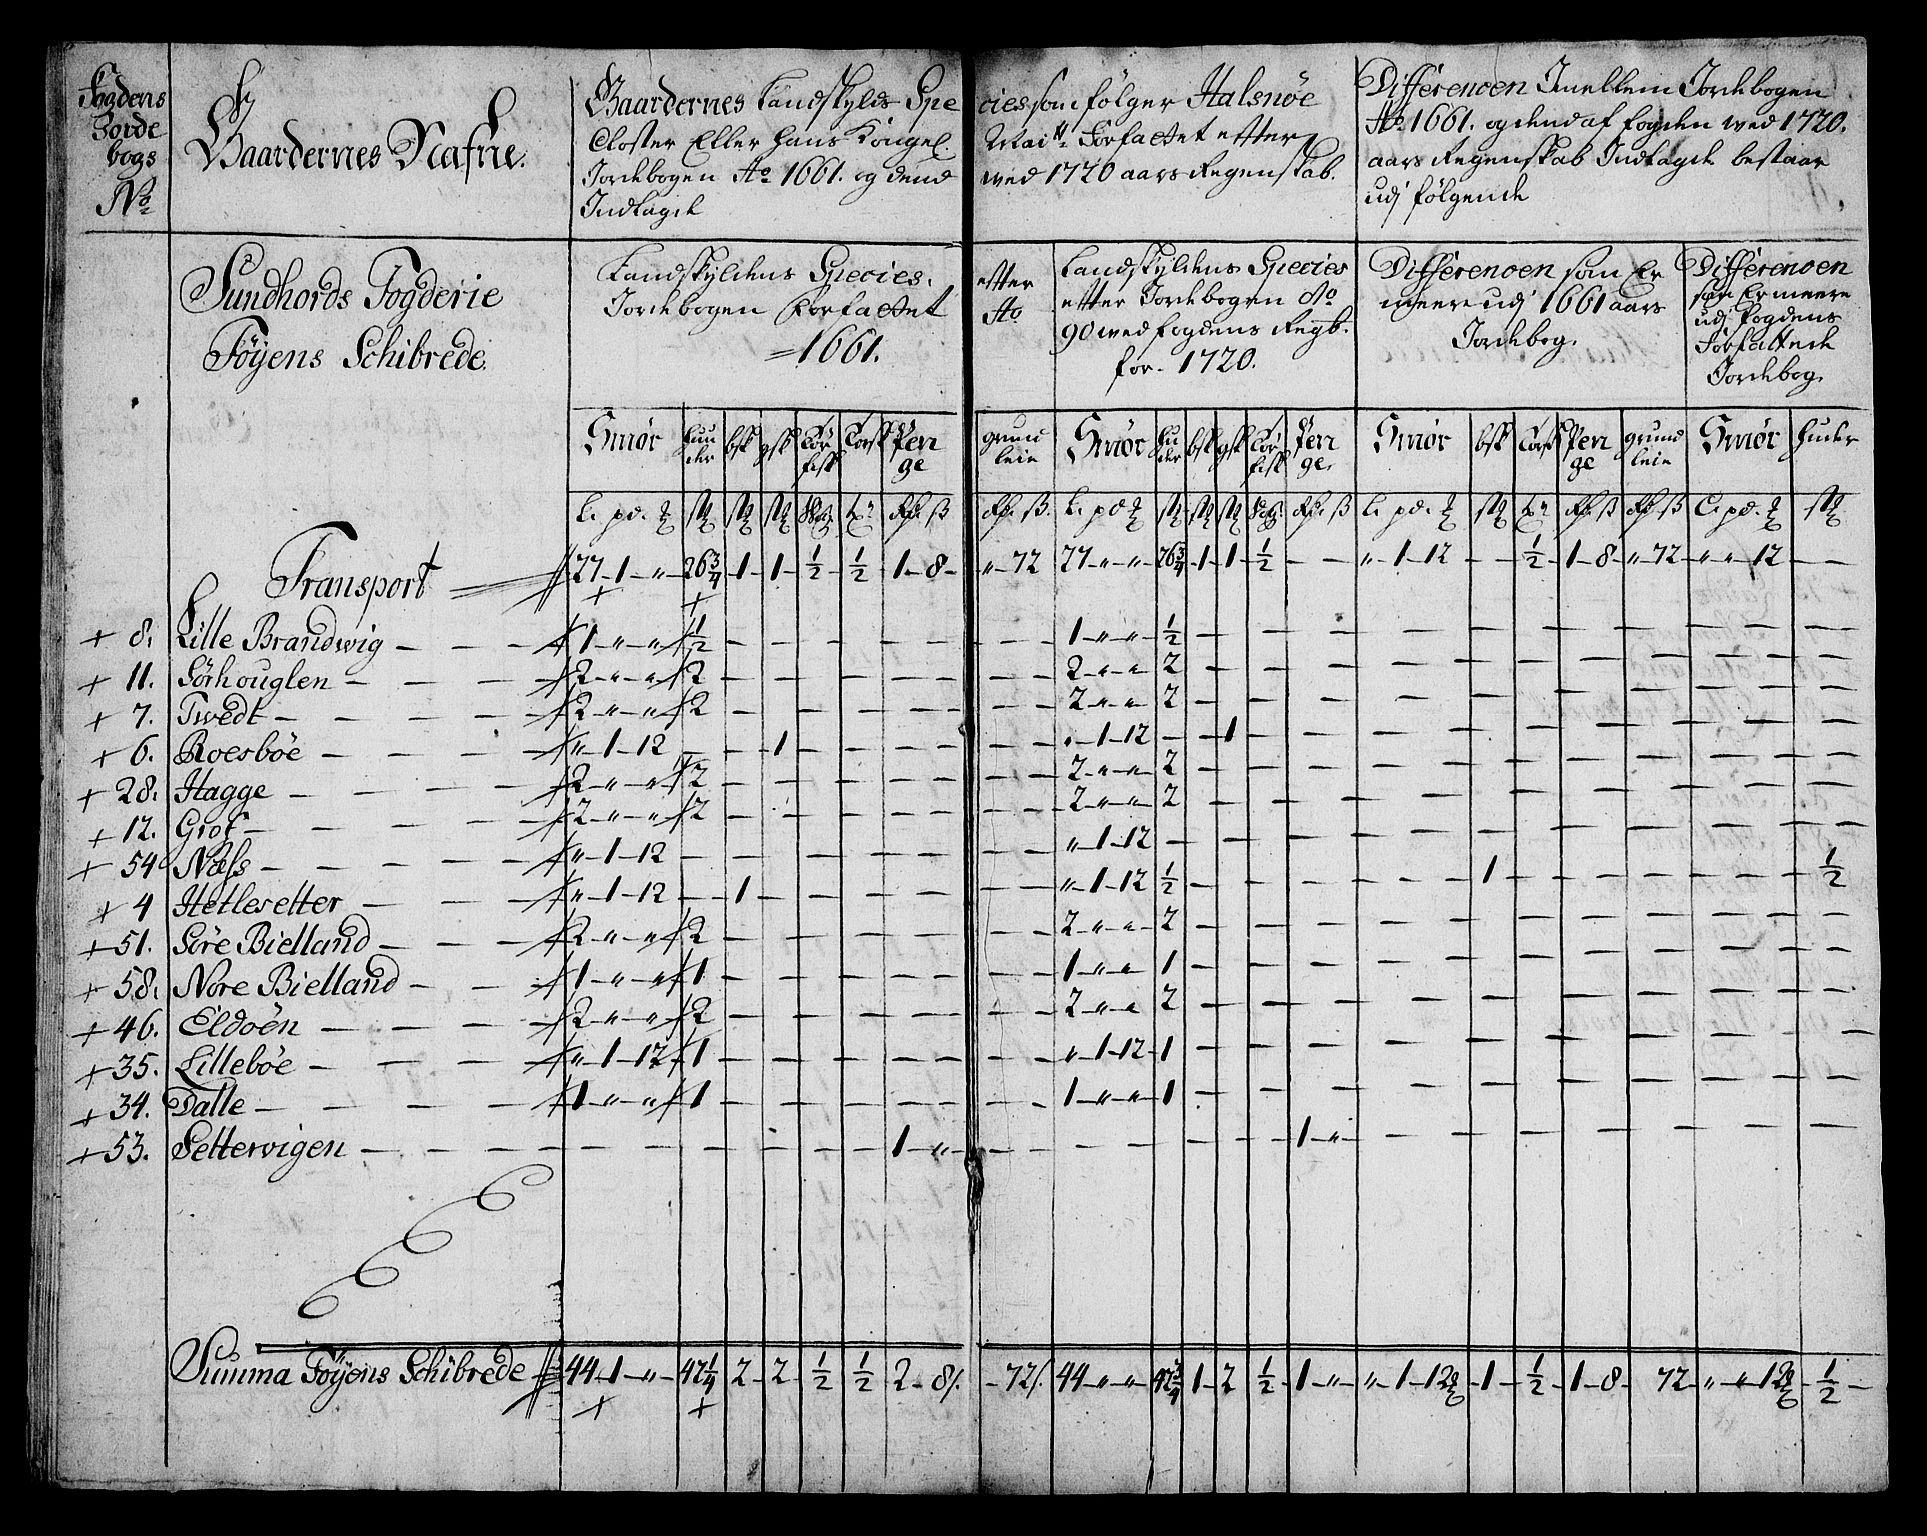 Fogdens
Jorde
bogs
No
Gaardernes Nafne.
Gaardernes Landskylds Spe
Closter Eller hans Kongel.
Jordebogen Ao 1661. og dend
Indtagde
cies som følger Halsnöe
Maits Forfattet efter
wed 1720 aars Regenskab.
Differencen Imellem Jordebogen
Ao 1661. og dend af fogden wed 1720.
aars Regenskab Indtagde bestaar
udj følgende
Sundhords Fogderie
Föyens Schibrede.
Landskyldens Species.
Jordebogen Forfattet
1661.
efter
Ao
Landskyldens Species
efter Jordebogen Ao
90 wed fogdens Regb.
for - 1720.
Differencen som Er
meere udj 1661 aars
Jordebog.
Differencen
som Er meere
udj fogdens
Forfattede
Jordebog.
Smör Huuder bsk gsk Törfisk Torsk Penge grundleie Smör Huder bsk gsk Törfisk Penge. Smör bsk Torsk Penge grundleie Smör huder
Transport 27-1-„- 26 3/4 -1-1- 1/2 - 1/2 -1-8- „-72 27-„-„- 26 3/4 -1-1- 1/2 - - „-1-12 - - 1/2 -1-8- „-72 „-„-12 - -
+ 8. Lille Brandwig - - - 1-„-„ 1/2 - - - - - - - - 1-„-„- 1/2 - - - - - - - - - - -
+ 11. Sörhouglen - - - 2-„-„ 2 - - - - - - - - 2-„-„ 2 - - - - - - - - - - -
+ 7. Twedt - - - - 2-„-„ 2 - - - - - - - - 2-„-„ 2 - - - - - - - - - - -
+ 6. Roesböe - - - „-1-12 - - - 1 - - - - - - „-1-12 - - 1 - - - - - - - - -
+ 28. Hagge - - - - 2-„-„ 2 - - - - - - - - 2-„-„ 2 - - - - - - - - - - -
+ 12. Giof - - - - 2-„-„ 2 - - - - - - - - 2-„-„ 2 - - - - - - - - - - -
+ 54 Næss - - - - „-1-12 - - - - - - - - „-1-12 - - - - - - - - - - -
+ 4 Hetlesetter - - - „-1-12 - - 1 - - - - - - - „-1-12 1/2 - - - - - 1 - - - - - 1/2
+ 51. Söre Bielland - - - 2-„-„ 2 - - - - - - - - 2-„-„- 2 - - - - - - - - - - -
+ 58. Nore Bielland - - - 1-„-„ 1 - - - - - - - - 1-„-„- 1 - - - - - - - - - - -
+ 46. Eldoën - - - - 2-„-„ 2 - - - - - - - - 2-„-„ 2 - - - - - - - - - - -
+ 35. Lilleböe - - - - „-1-12 1 - - - - - - - - „-1-12-1 - - - - - - - - - - -
+ 34. Dalle - - - - 1-„-„ 1 - - - - - - - - 1-„-„-1 - - - - - - - - - - -
+ 53. Settervigen - - - - - - - - - - - 1-„- - - - - - - - 1-„- - - - - - - -
Summa Föyens Schibrede 44-1-„- 42 1/4 2-2- 1/2 1/2 2-8/. -72/. 44-„-„- 42 3/4 1-2 1/2 -1-„- „-1-12 -1- 1/2 -1-8- 72- „-„-12 - 1/2 -